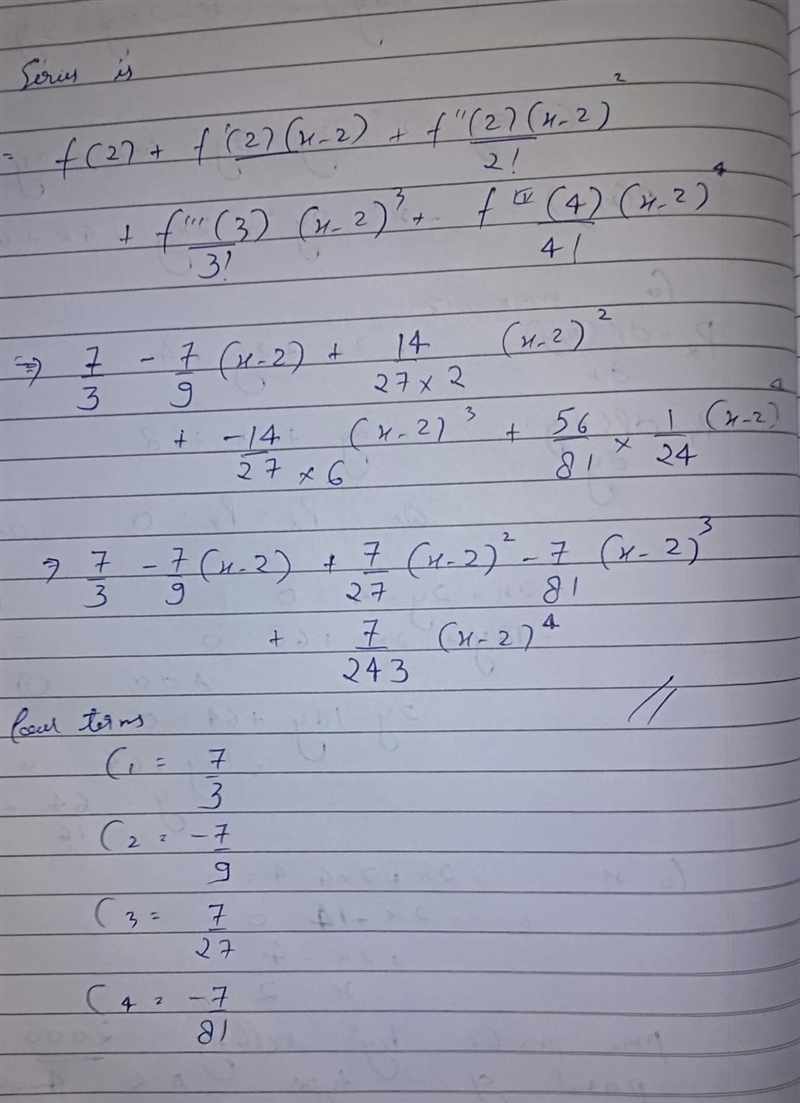 Series is
= f(2) + f'(2)(x-2) + f''(2)(x-2)²/2!
+ f'''(3)/3! (x-2)³ + f^IV(4)/4! (x-2)⁴
⇒ 7/3 - 7/9 (x-2) + 14/(27×2) (x-2)²
+ -14/(27×6) (x-2)³ + 56/81 × 1/24 (x-2)⁴
⇒ 7/3 - 7/9 (x-2) + 7/27 (x-2)² - 7/81 (x-2)³
+ 7/243 (x-2)⁴ //
four terms
C₁ = 7/3
C₂ = -7/9
C₃ = 7/27
C₄ = -7/81